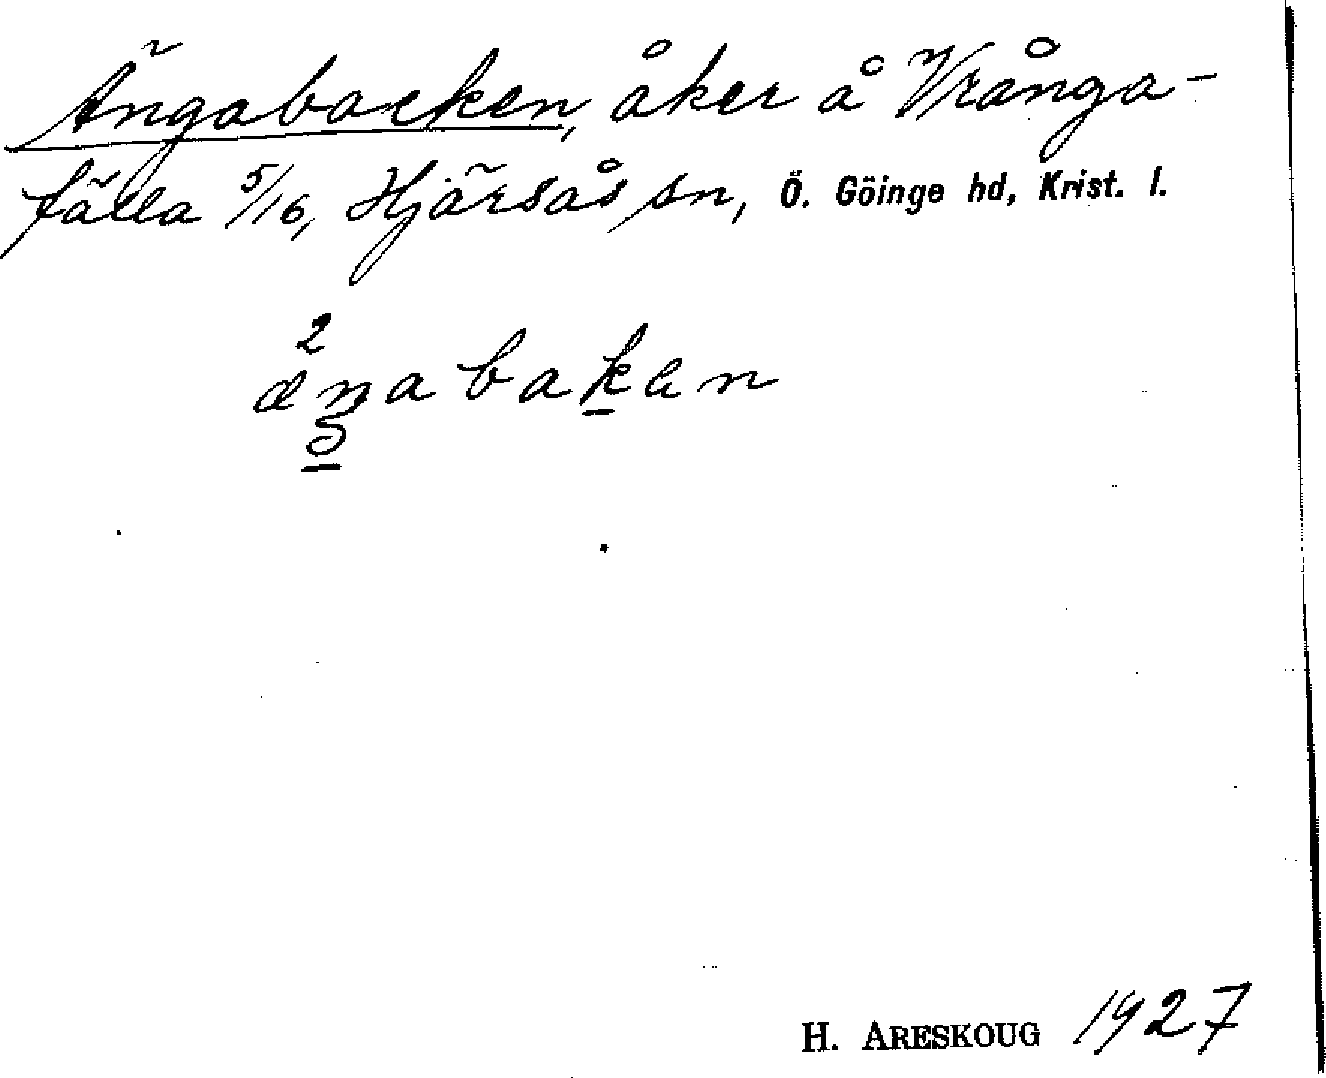 Ängabacken, åker å Vrånga-
fälla 5/16, Hjärsås sn, Ö. Göinge hd, Krist. l.
2
æŋabakən
5
H. ARESKOUG 1927